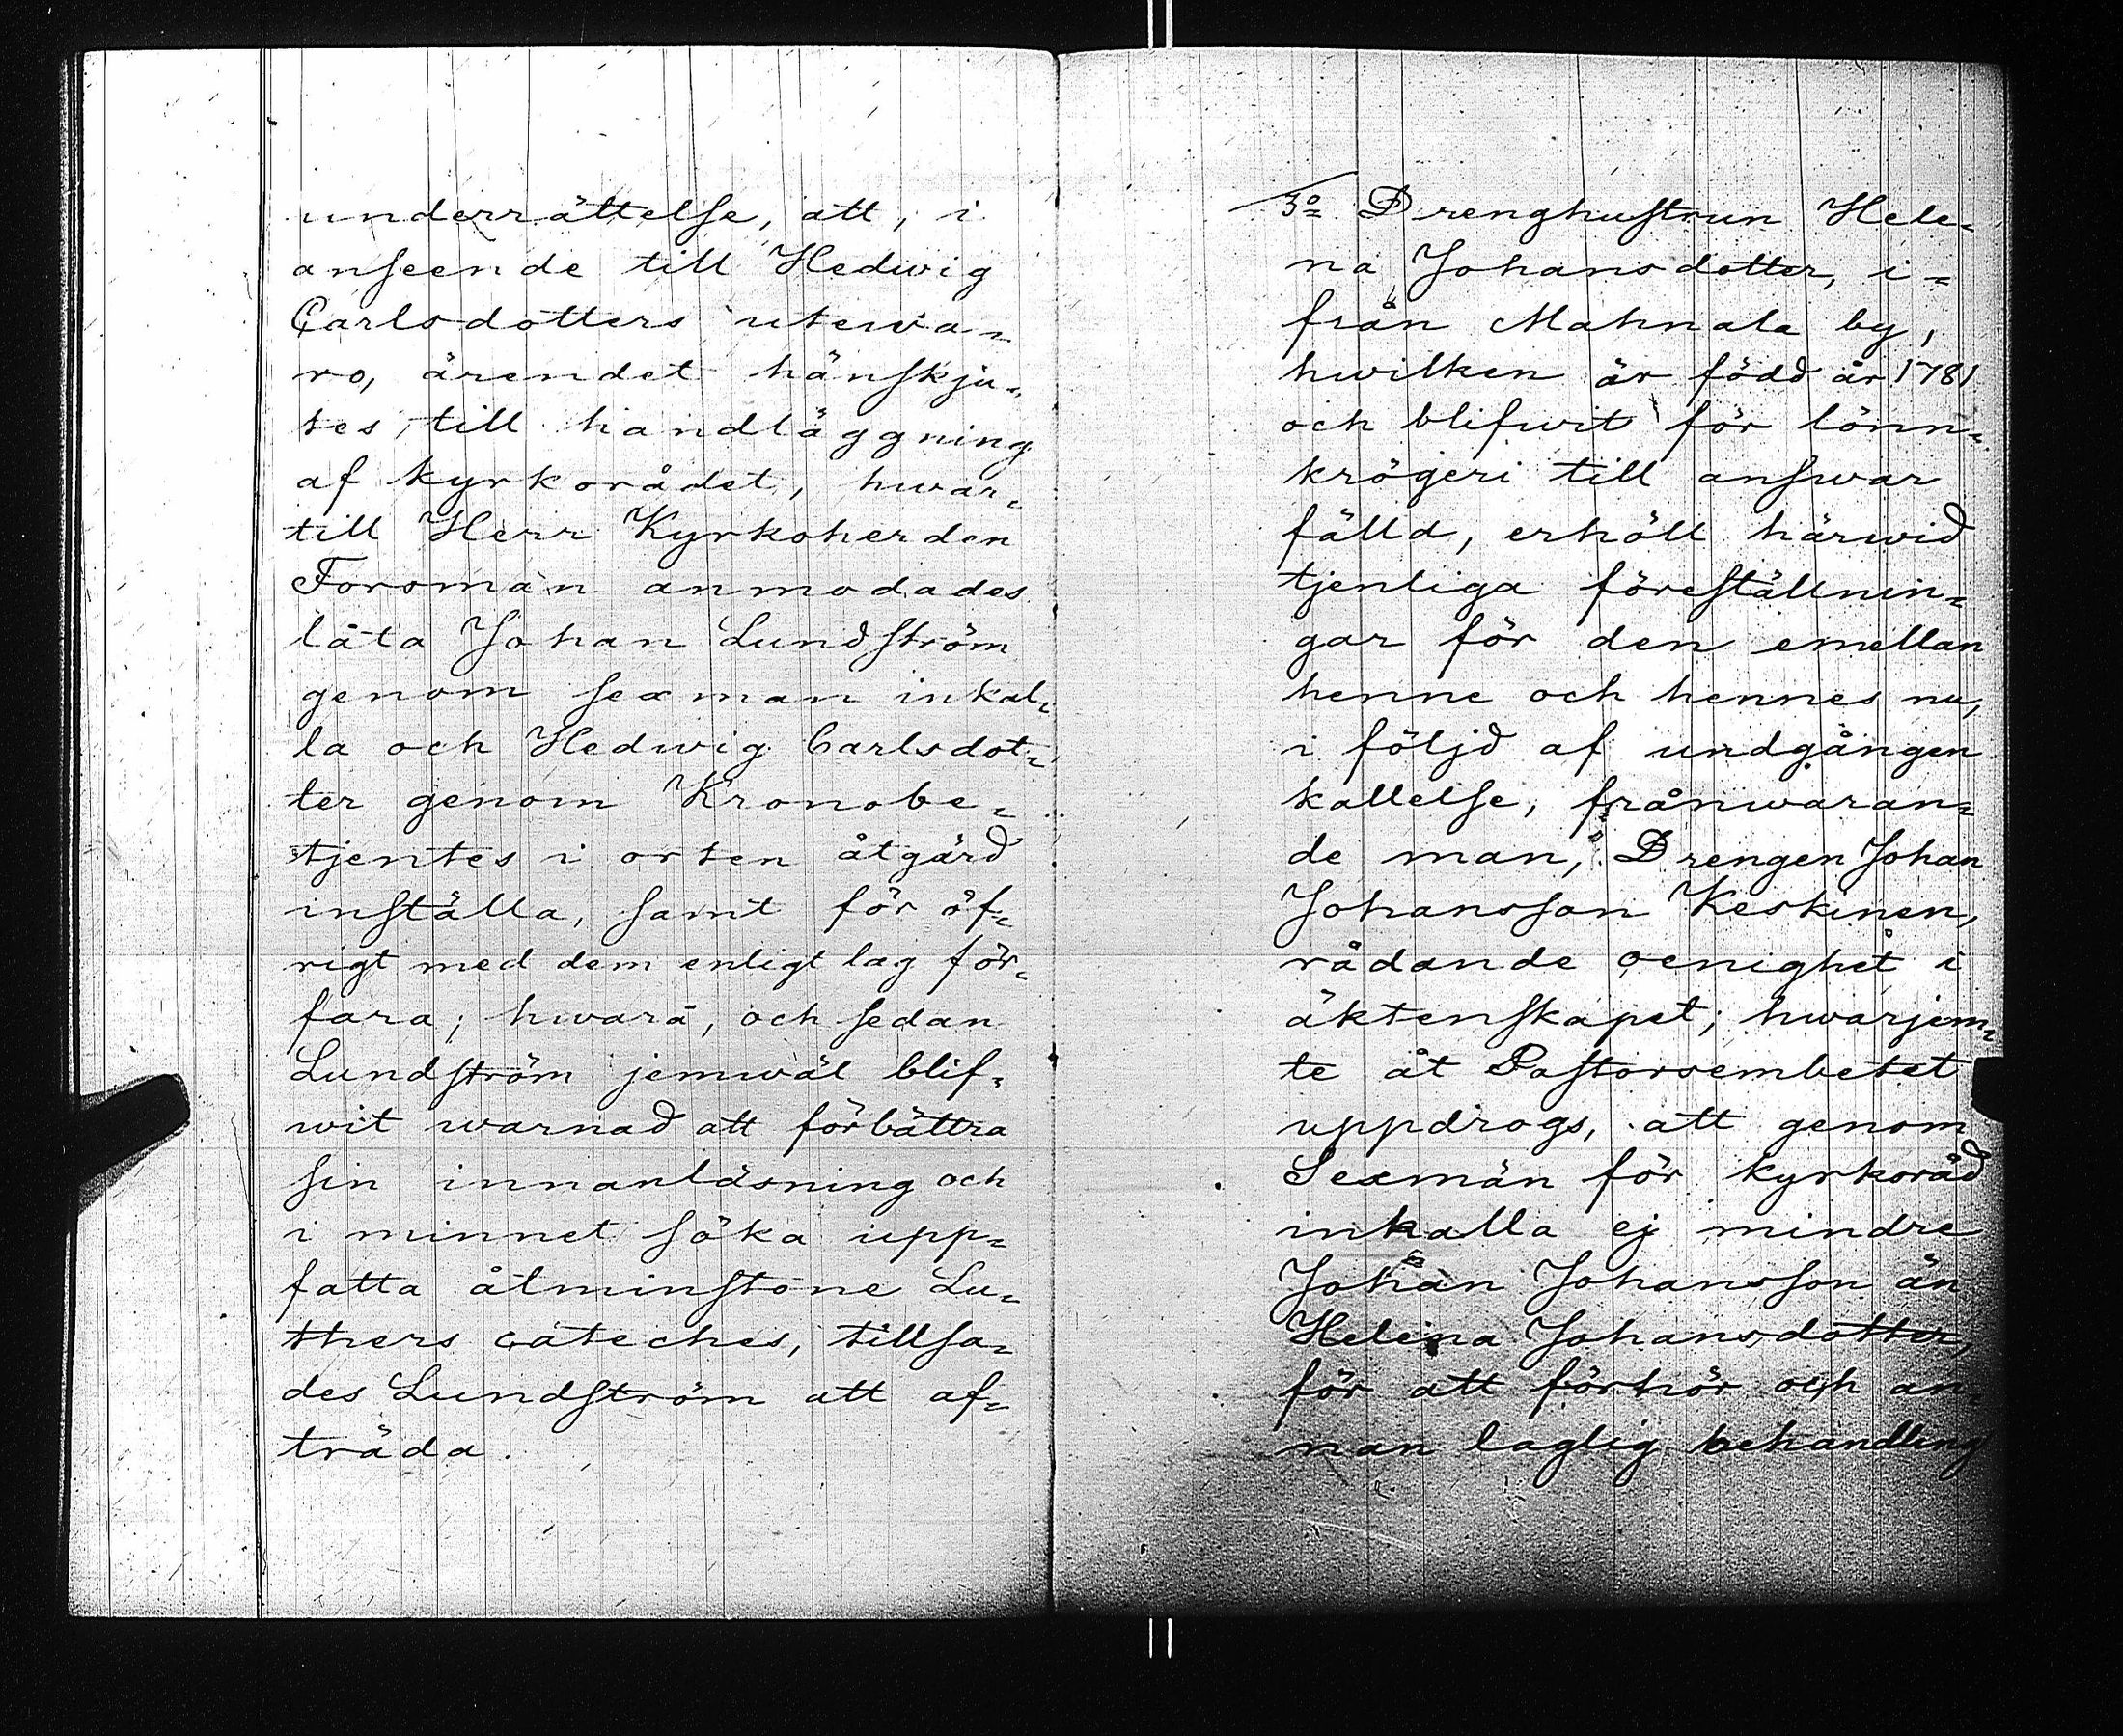 underrättelse, att, i
anseende till Hedwig
Carlsdotters utewa=
ro, ärendet hänskju=
tes till handläggning
af kyrkorådet, hwar=
till Herr Kyrkoherden
Forsman anmodades
låta Johan Lundström
genom sexman inkal=
la och Hedwig Carlsdot=
ter genom Kronobe=
tjentes i orten åtgärd
inställa, samt för öf=
rigt med dem enligt lag för=
fara; hwarå, och sedan
Lundström jemwäl blif=
wit warnad att förbättra
sin innanläsning och
i minnet söka upp=
fatta åtminstone Lu=
thers cateches, tillsa=
des Lundström att af=
träda.
3o Drenghustrun Hele=
na Johansdotter, i=
från Mahnala by,
hwilken är född år 1781
och blifwit för lönn=
krögeri till answar
fälld, erhöll härwid
tjenliga föreställnin=
gar för den emellan
henne och hennes nu,
i följd af undgången
kallelse, frånwaran=
de man, Drengen Johan
Johansson Keskinen,
rådande oenighet i
äktenskapet; hwarjem=
te åt Pastorsembetet
uppdrogs, att genom
Sexmän för kyrkoråd
inkalla ej mindre
Johan Johansson än
Helena Johansdotter,
för att förhör och an=
nan laglig behandling